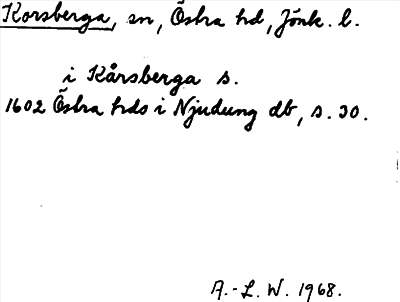 Korsberga, sn, Östra hd, Jönk. l.
i Kårsberga s.
1602 Östra hds i Njudung db, s. 30.
A.-L. W. 1968.